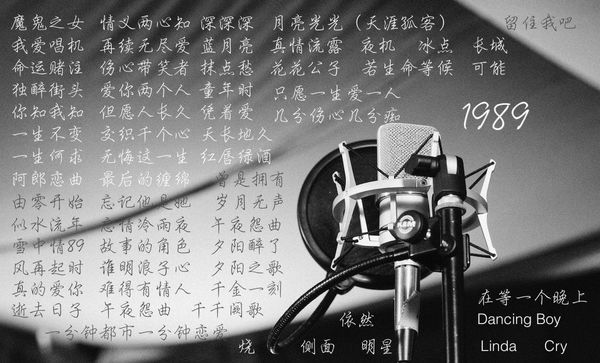 魔鬼之女 情义两心知 深深深 月亮光光（天涯孤客） 留住我吧
我爱唱机 再续无尽爱 蓝月亮 真情流露 夜机 冰点 长城
命运赌注 伤心带笑者 抹点愁 花花公子 若生命等候 可能
独醉街头 爱你两个人 童年时 只愿一生爱一人
你知我知 但愿人长久 凭着爱 几分伤心几分痴
1989
一生不变 交织千个心 天长地久
一生何求 无悔这一生 红唇绿酒
阿郎恋曲 最后的缠绵 曾是拥有
由零开始 忘记他是她 岁月无声
似水流年 忘情冷雨夜 午夜怨曲
雪中情89 故事的角色 夕阳醉了
风再起时 谁明浪子心 夕阳之歌
真的爱你 难得有情人 千金一刻
逝去日子 午夜怨曲 千千阙歌
一分钟都市一分钟恋爱
依然
烧 侧面 明星
在等一个晚上
Dancing Boy
Linda Cry